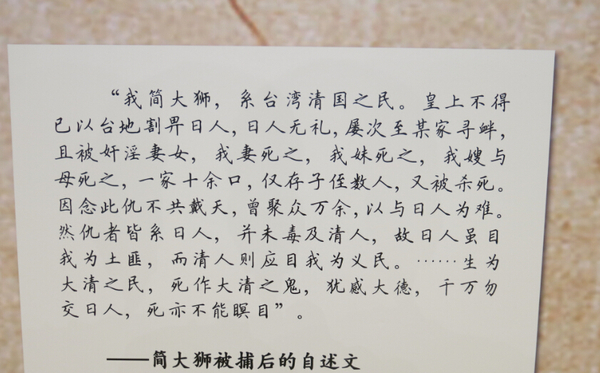 “我简大狮，系台湾清国之民。皇上不得
已以台地割畀日人，日人无礼，屡次至某家寻衅，
且被奸淫妻女，我妻死之，我妹死之，我嫂与
母死之，一家十余口，仅存子侄数人，又被杀死。
因念此仇不共戴天，曾聚众万余，以与日人为难。
然仇者皆系日人，并未毒及清人，故日人虽目
我为土匪，而清人则应目我为义民。……生为
大清之民，死作大清之鬼，犹感大德，千万勿
交日人，死亦不能瞑目”。
——简大狮被捕后的自述文